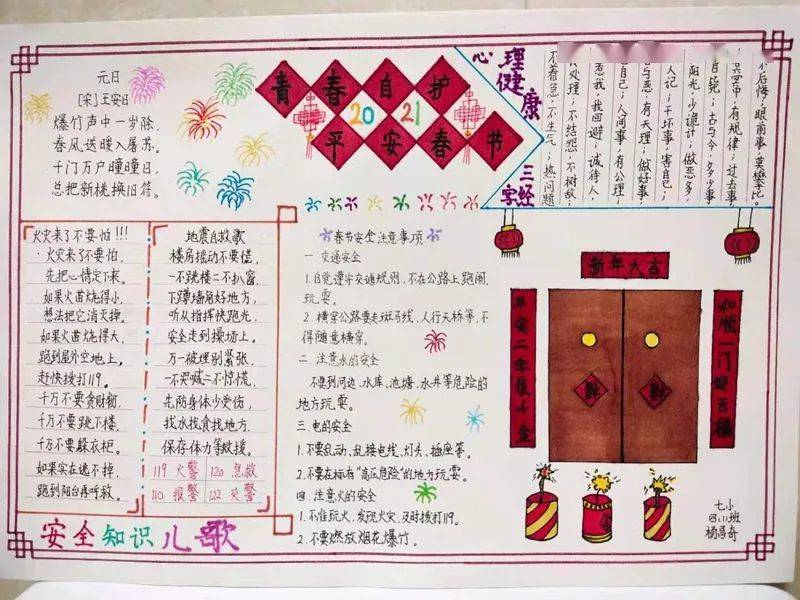 元日
[宋]王安日
爆竹声中一岁除，
春风送暖入屠苏。
千门万户曈曈日，
总把新桃换旧符。
青春自护
2021
平安春节
心理健康
三字经
不后悔；眼雨事，莫攀比。
有规律；过去事
自饶；古与今，多少事
阳光，少诡计；做恶多，
人记；干坏事，害自己；
与恶，有天理；做好事，
自己；人间事，有公理，
惹我，我回避；诚待人，
处理；不结怨，不树敌，
不着急，不生气；热问题
火灾来了不要怕!!!
火灾来了不要怕，
先把心情定下来。
如果火苗烧得小，
想法把它消灭掉。
如果火苗烧得大，
跑到屋外空地上，
赶快拨打119。
千万不要贪财物，
千万不要跳下楼。
千万不要躲衣柜。
如果实在逃不掉，
跑到阳台再呼救。
地震自救歌
楼房摇动不要慌，
一不跳楼二不扒窗，
下蹲墙角好地方，
听从指挥快跑光，
安全走到操场上。
万一被埋别紧张，
一不哭喊二不惊慌，
先防身体少受伤，
找水找食找地方，
保存体力等救援。
119 火警 120 急救
110 报警 122 交警
安全知识儿歌
春节安全注意事项
一 交通安全
1.自觉遵守交通规则，不在公路上跑闹、
玩耍。
2.横穿公路要走斑马线、人行天桥等，不
得随意横穿。
二．注意水的安全
不要到河边、水库、池塘、水井等危险的
地方玩耍。
三．电的安全
1.不要乱动、乱接电线、灯头、插座等。
2.不要在标有“高压危险”的地方玩耍。
四．注意火的安全
1.不准玩火，发现火灾，及时拨打119。
2.不要燃放烟花、爆竹。
新年大吉
平安二字值千金
和顺一门迎百福
七小
四(1)班
杨昌奇